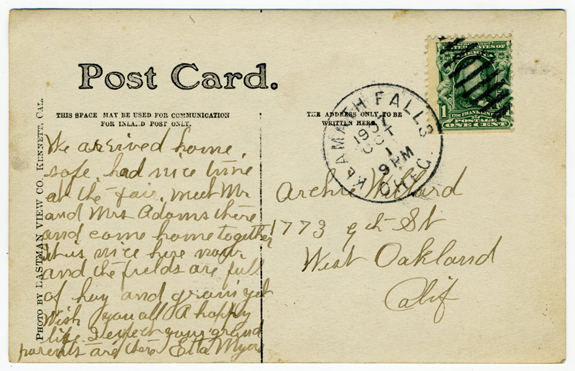 Post Card.
THIS SPACE MAY BE USED FOR COMMUNICATION
FOR INLAND POST ONLY.
THE ADDRESS ONLY TO BE
WRITTEN HERE
UNITED STATES OF AMERICA
1 FRANKLIN 1
POSTAGE
ONE CENT
KLAMATH FALLS
1907
OCT
1
9 PM
OREG.
PHOTO BY EASTMAN VIEW CO. KENNETT, CAL.
We arrived home
safe. had nice time
at the fair. meet Mr
and Mrs Adams there
and come home together
it is nice here now
and the fields are full
of hay and grain yet
Wish you all A happy
life I expect your grand
parents are there Etta Myer
Archie
1773 9th St
West Oakland
Calif